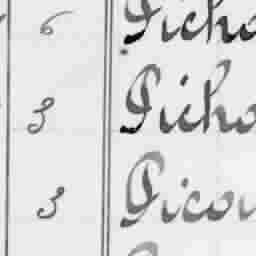 6 Picho
3 Picho
3 Picou